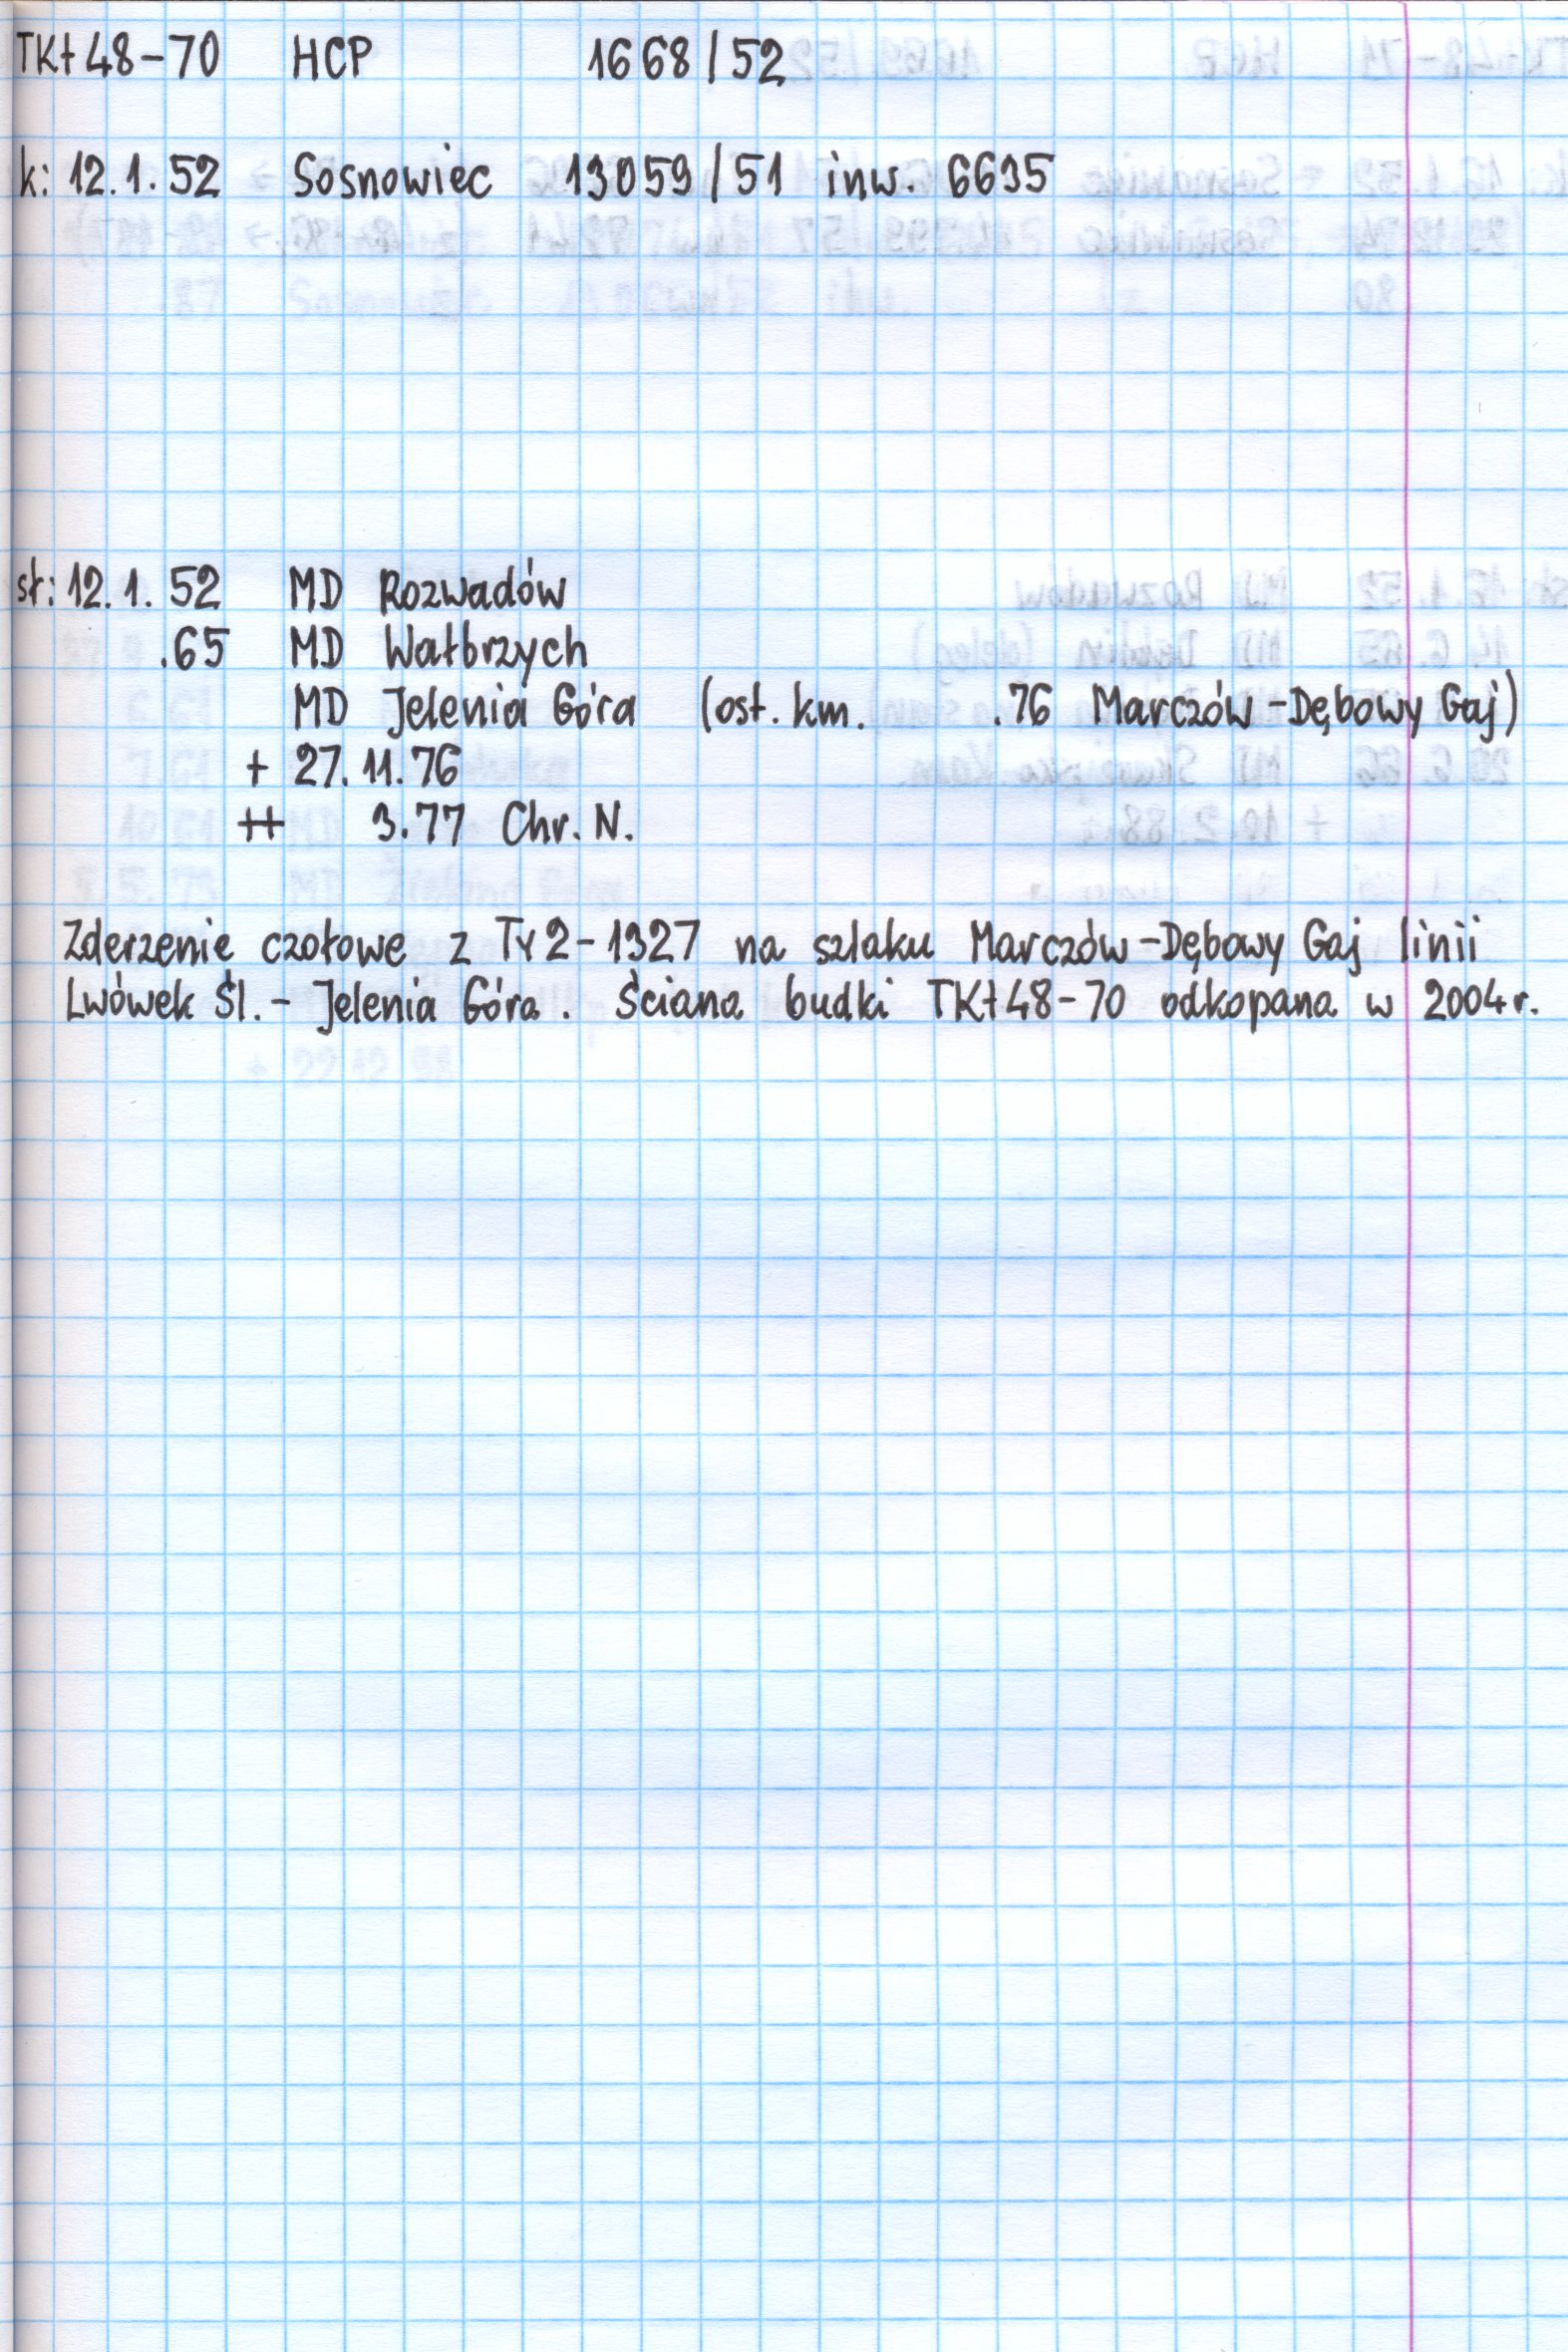 TKt48-70 HCP 1668/52
k: 12.1.52 Sosnowiec 13059/51 inw. 6695
st: 12.1.52 MD Rozwadów
.65 MD Wałbrzych
MD Jelenia Góra (ost. km. .76 Marczów-Dębowy Gaj)
+ 27.11.76
++ 3.77 Chr. N.
Zderzenie czołowe z Ty2-1327 na szlaku Marczów-Dębowy Gaj linii
Lwówek Śl. - Jelenia Góra. Ściana budki TKt48-70 odkopana w 2004r.